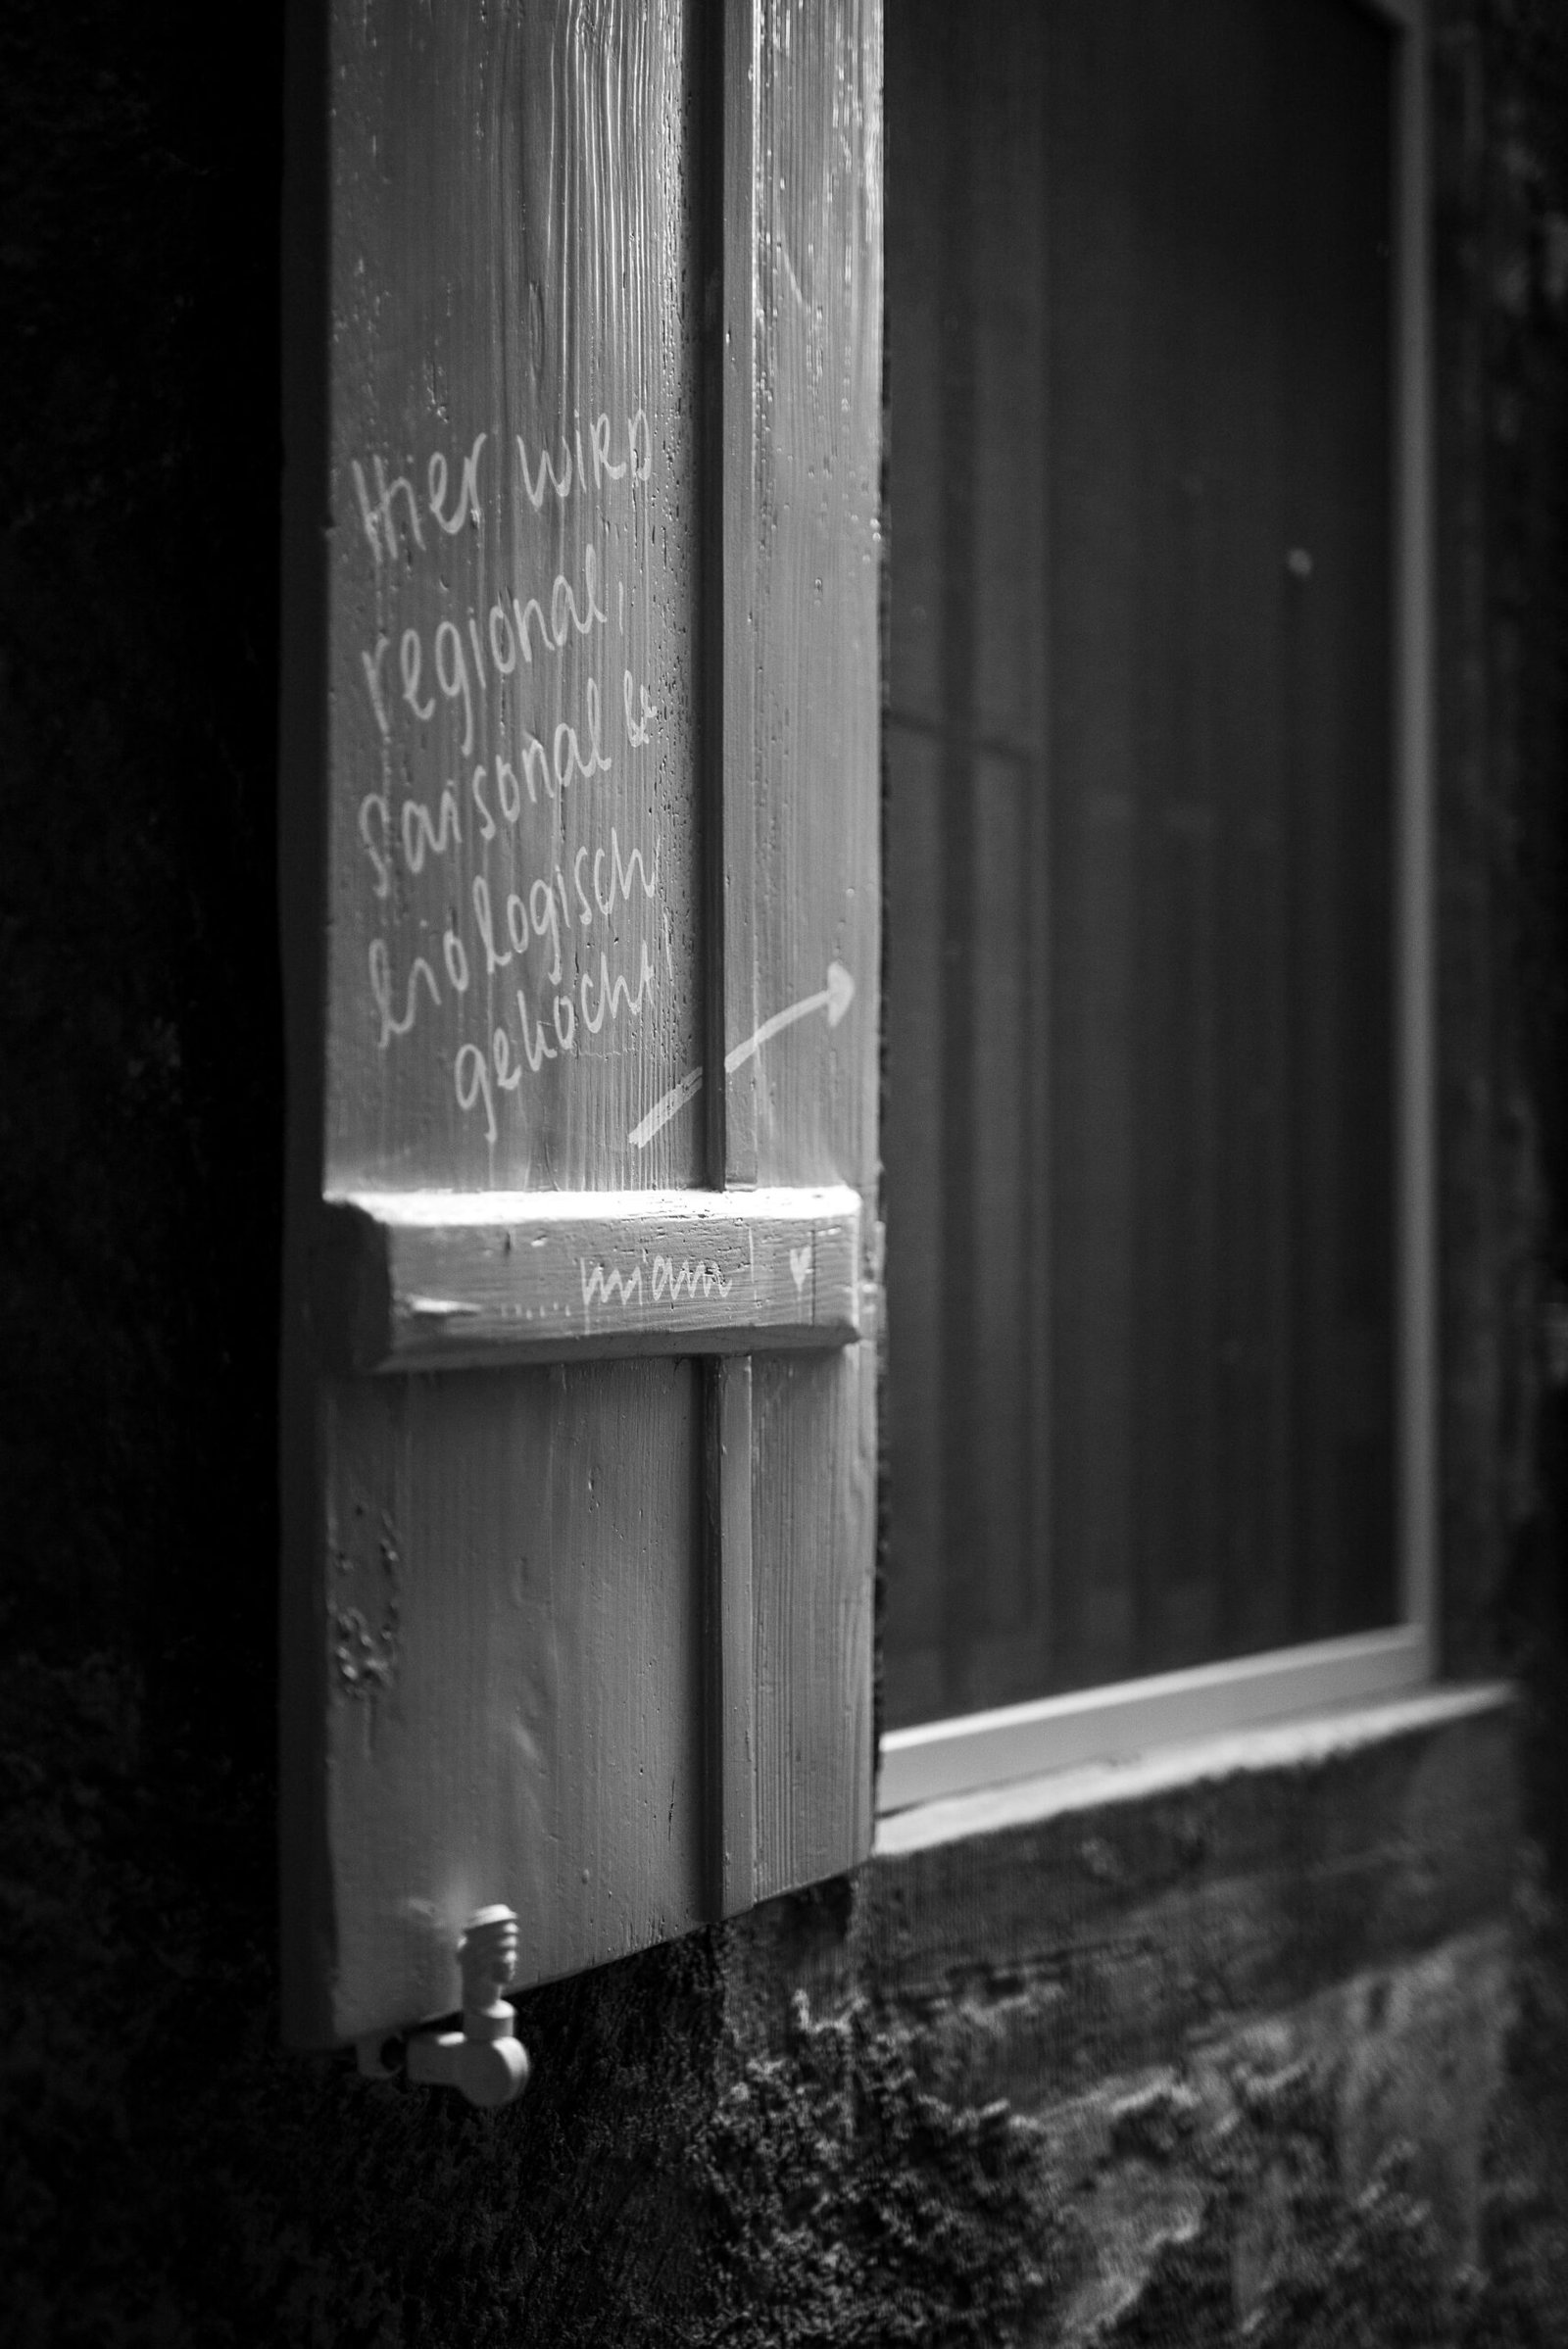 Hier wird
regional,
saisonal &
biologisch
gekocht!
......miam! ♥